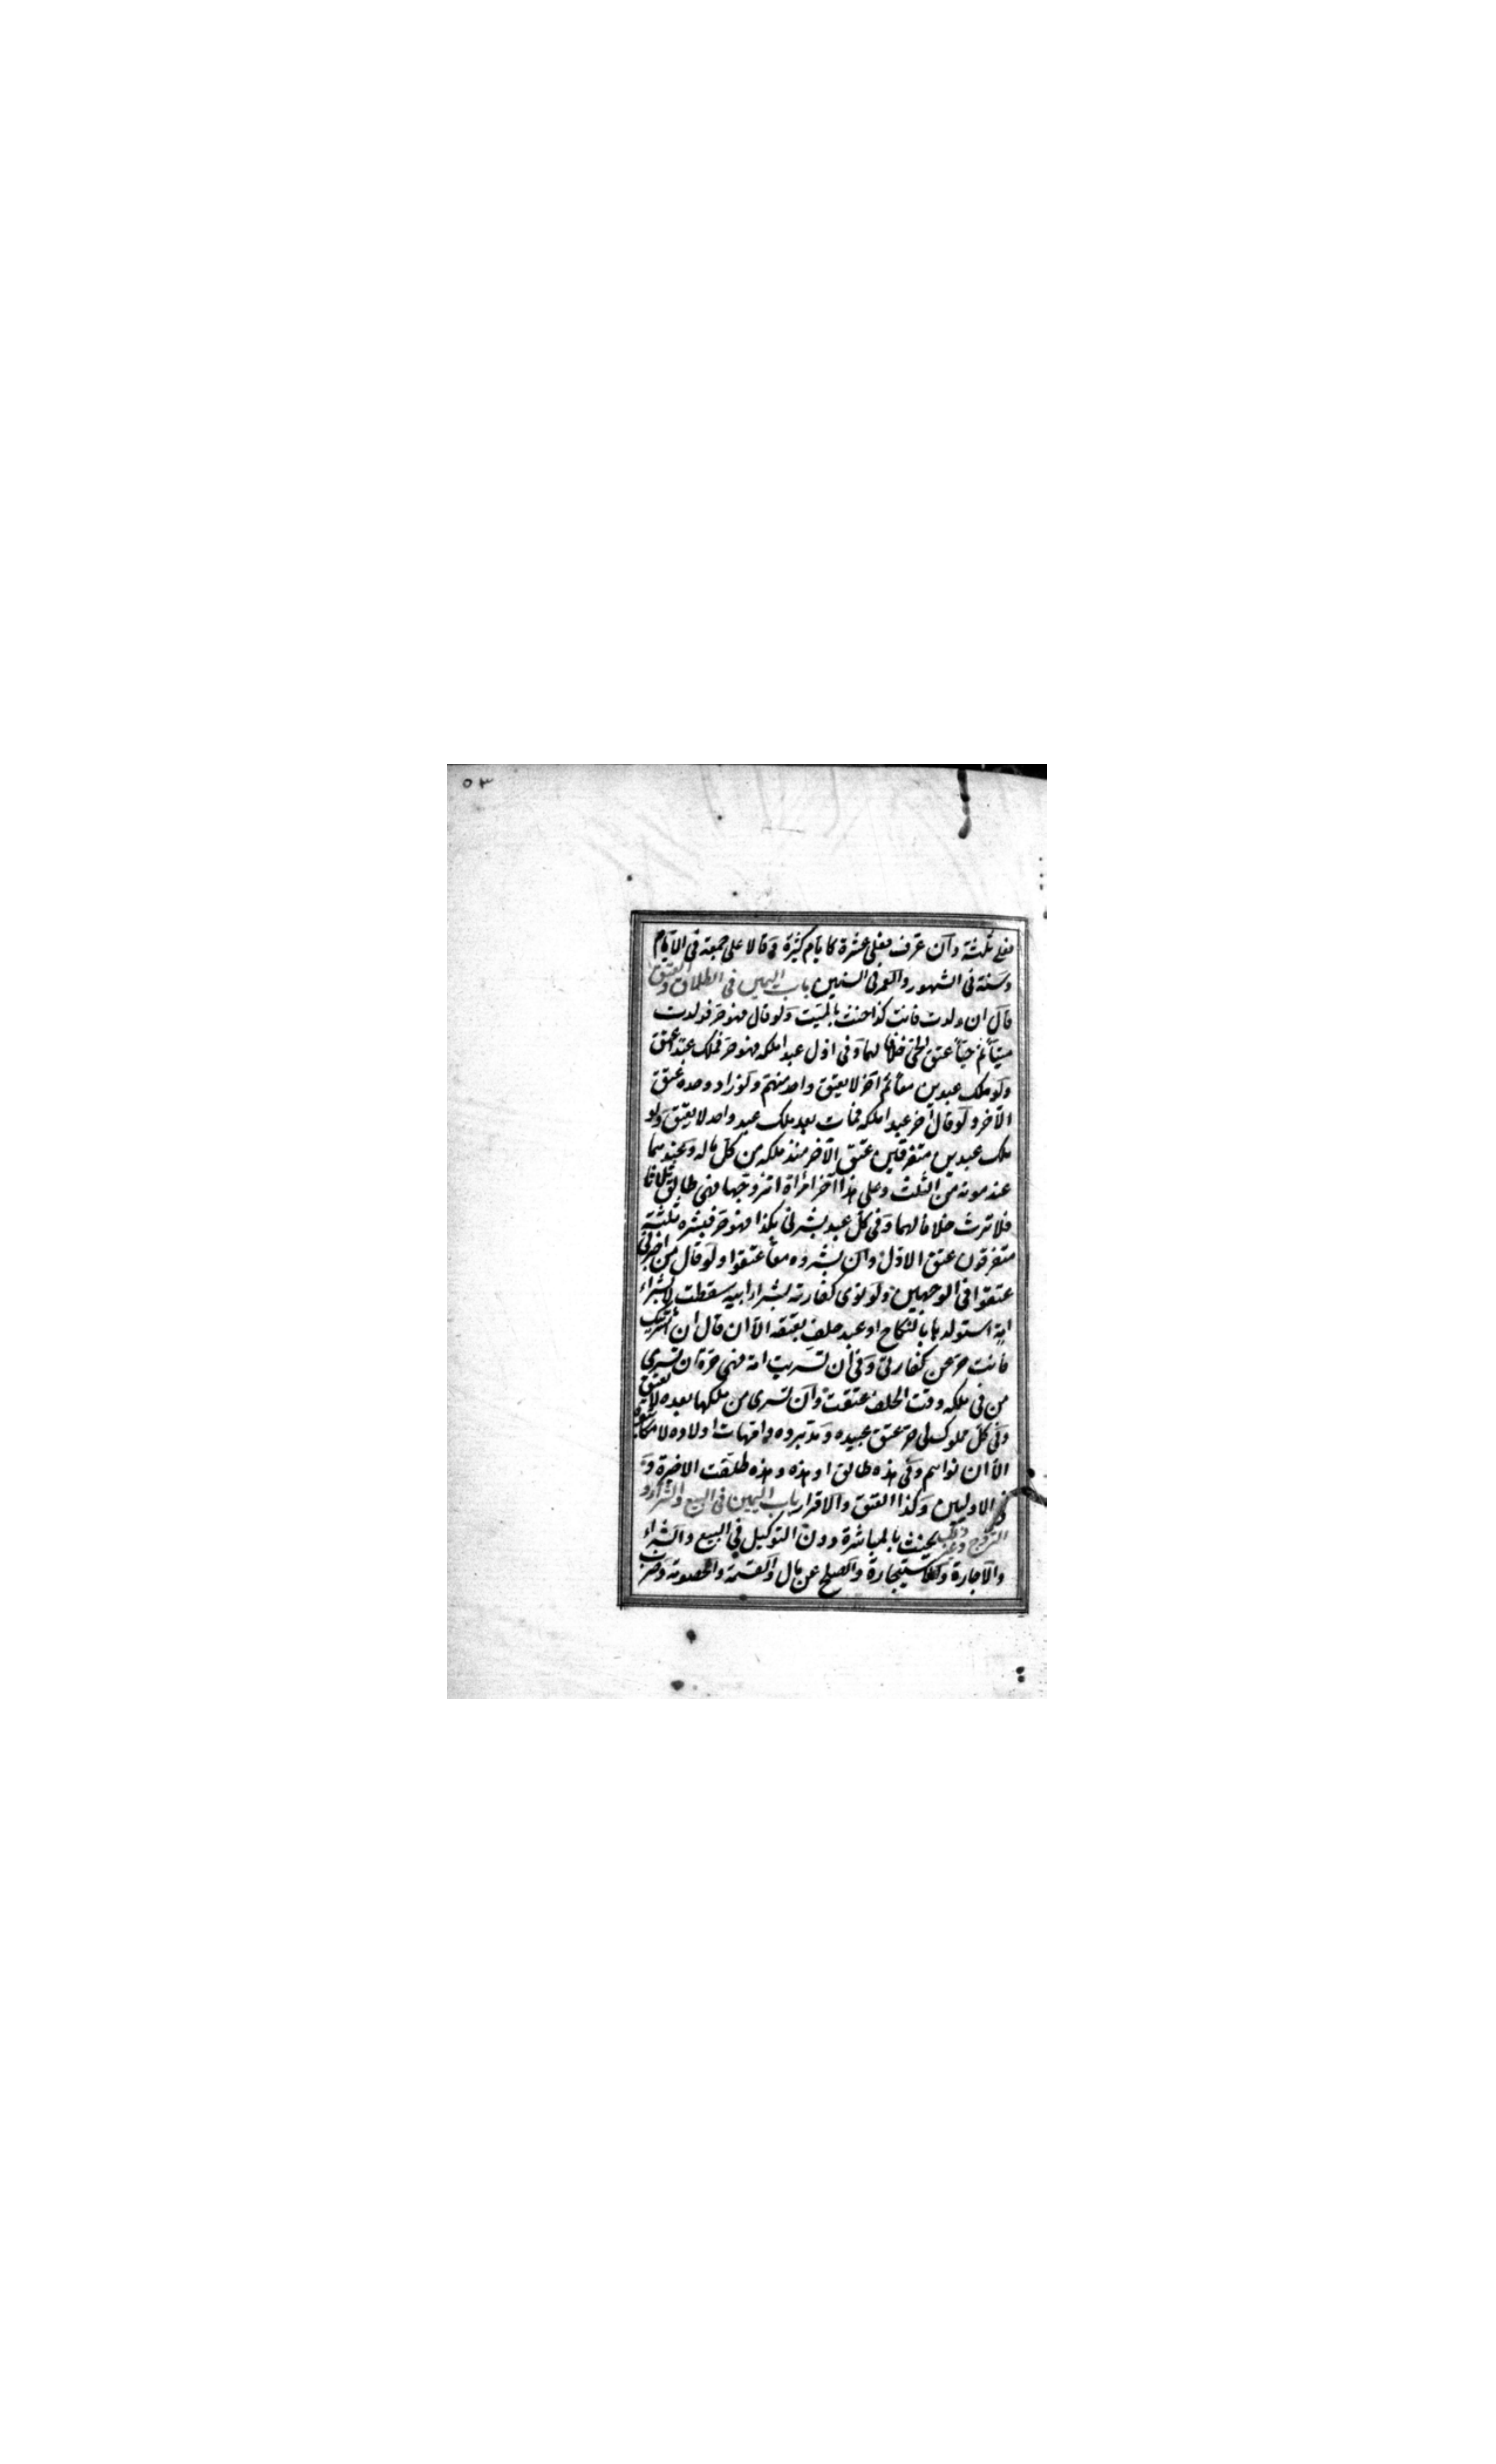 ٥٣
فعلى ثلثة وان عرف فعلى عشرة كايام كثيرة وقالا على جمعة فى الايام
وسنة فى الشهور والعمر فى السنين باب اليمين فى الطلاق والعتق
قال ان ولدت فانت كذا حنث بالميت ولو قال فهو حر فولدت
ميتا ثم حيا عتق الحى خلافا لهما وفى اول عبد املكه فهو حر فملك عبدا عتق
ولو ملك عبدين معا ثم آخر لا يعتق واحد منهم ولو زاد وحده عتق
الآخر ولو قال آخر عبد املكه فمات بعد ملك عبد واحد لا يعتق ولو
ملك عبدين متفرقين عتق الآخر منذ ملكه من كل ماله وعندهما
عند موته من الثلث وعلى هذا آخر امرأة اتزوجها فهى طالق ثلاثا
فلا ترث خلافا لهما وفى كل عبد بشرنى بكذا فهو حر فبشره ثلثة
متفرقون عتق الاول وان بشروه معا عتقوا ولو قال من اخبرنى
عتقوا فى الوجهين ولو نوى كفارته بشراء ابيه سقطت لا بشراء
امة استولدها بالنكاح او عبد حلف بعتقه الا ان قال ان اشتريتك
فانت حر عن كفارتى وفى ان تسريت امة فهى حرة ان تسرى
من فى ملكه وقت الحلف عتقت وان تسرى من ملكها بعده لا تعتق
وفى كل مملوك لى حر عتق عبيده ومدبروه وامهات اولاده لا مكاتبوه
الا ان نواهم وفى هذه طالق او هذه وهذه طلقت الاخيرة و
فى الاوليين وكذا العتق والاقرار باب اليمين فى البيع والشراء و
التزوج وغير ذلك يحنث بالمباشرة دون التوكيل فى البيع والشراء
والاجارة والاستيجارة والصلح عن مال والقسمة والخصومة وضرب